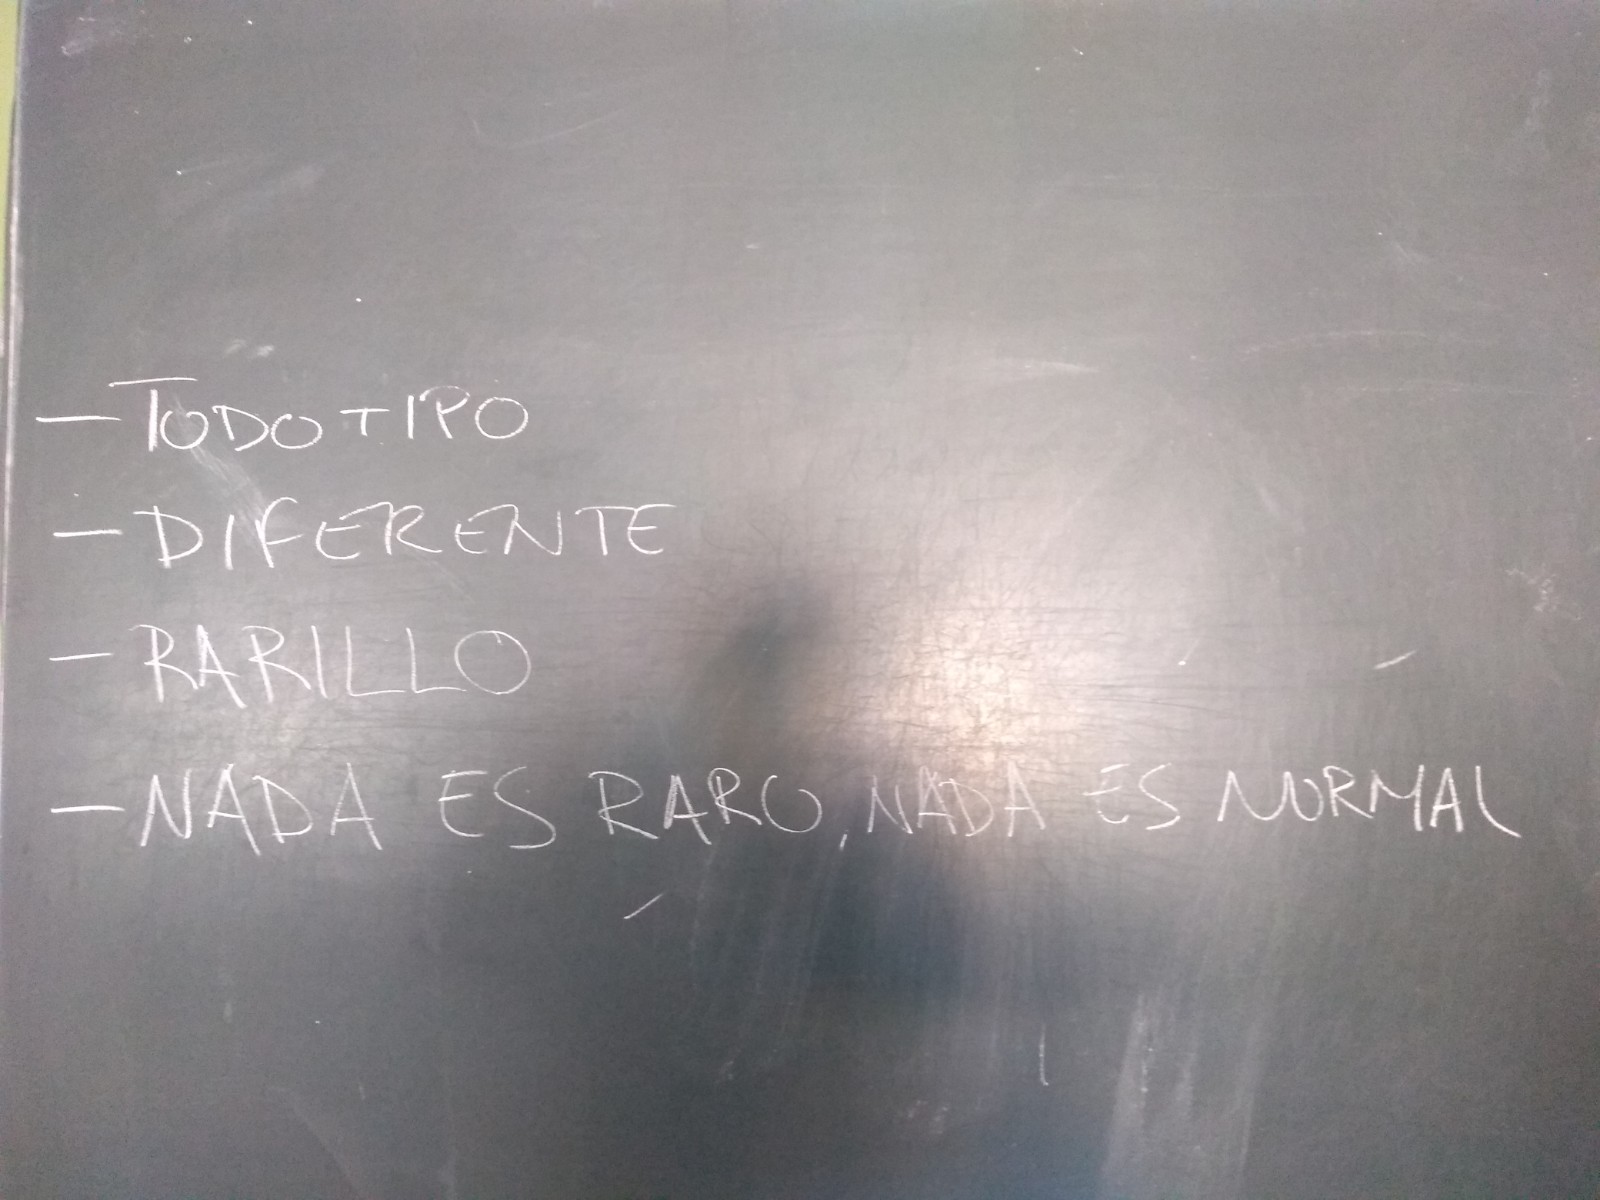 - TODO TIPO
- DIFERENTE
- RARILLO
- NADA ES RARO, NADA ES NORMAL